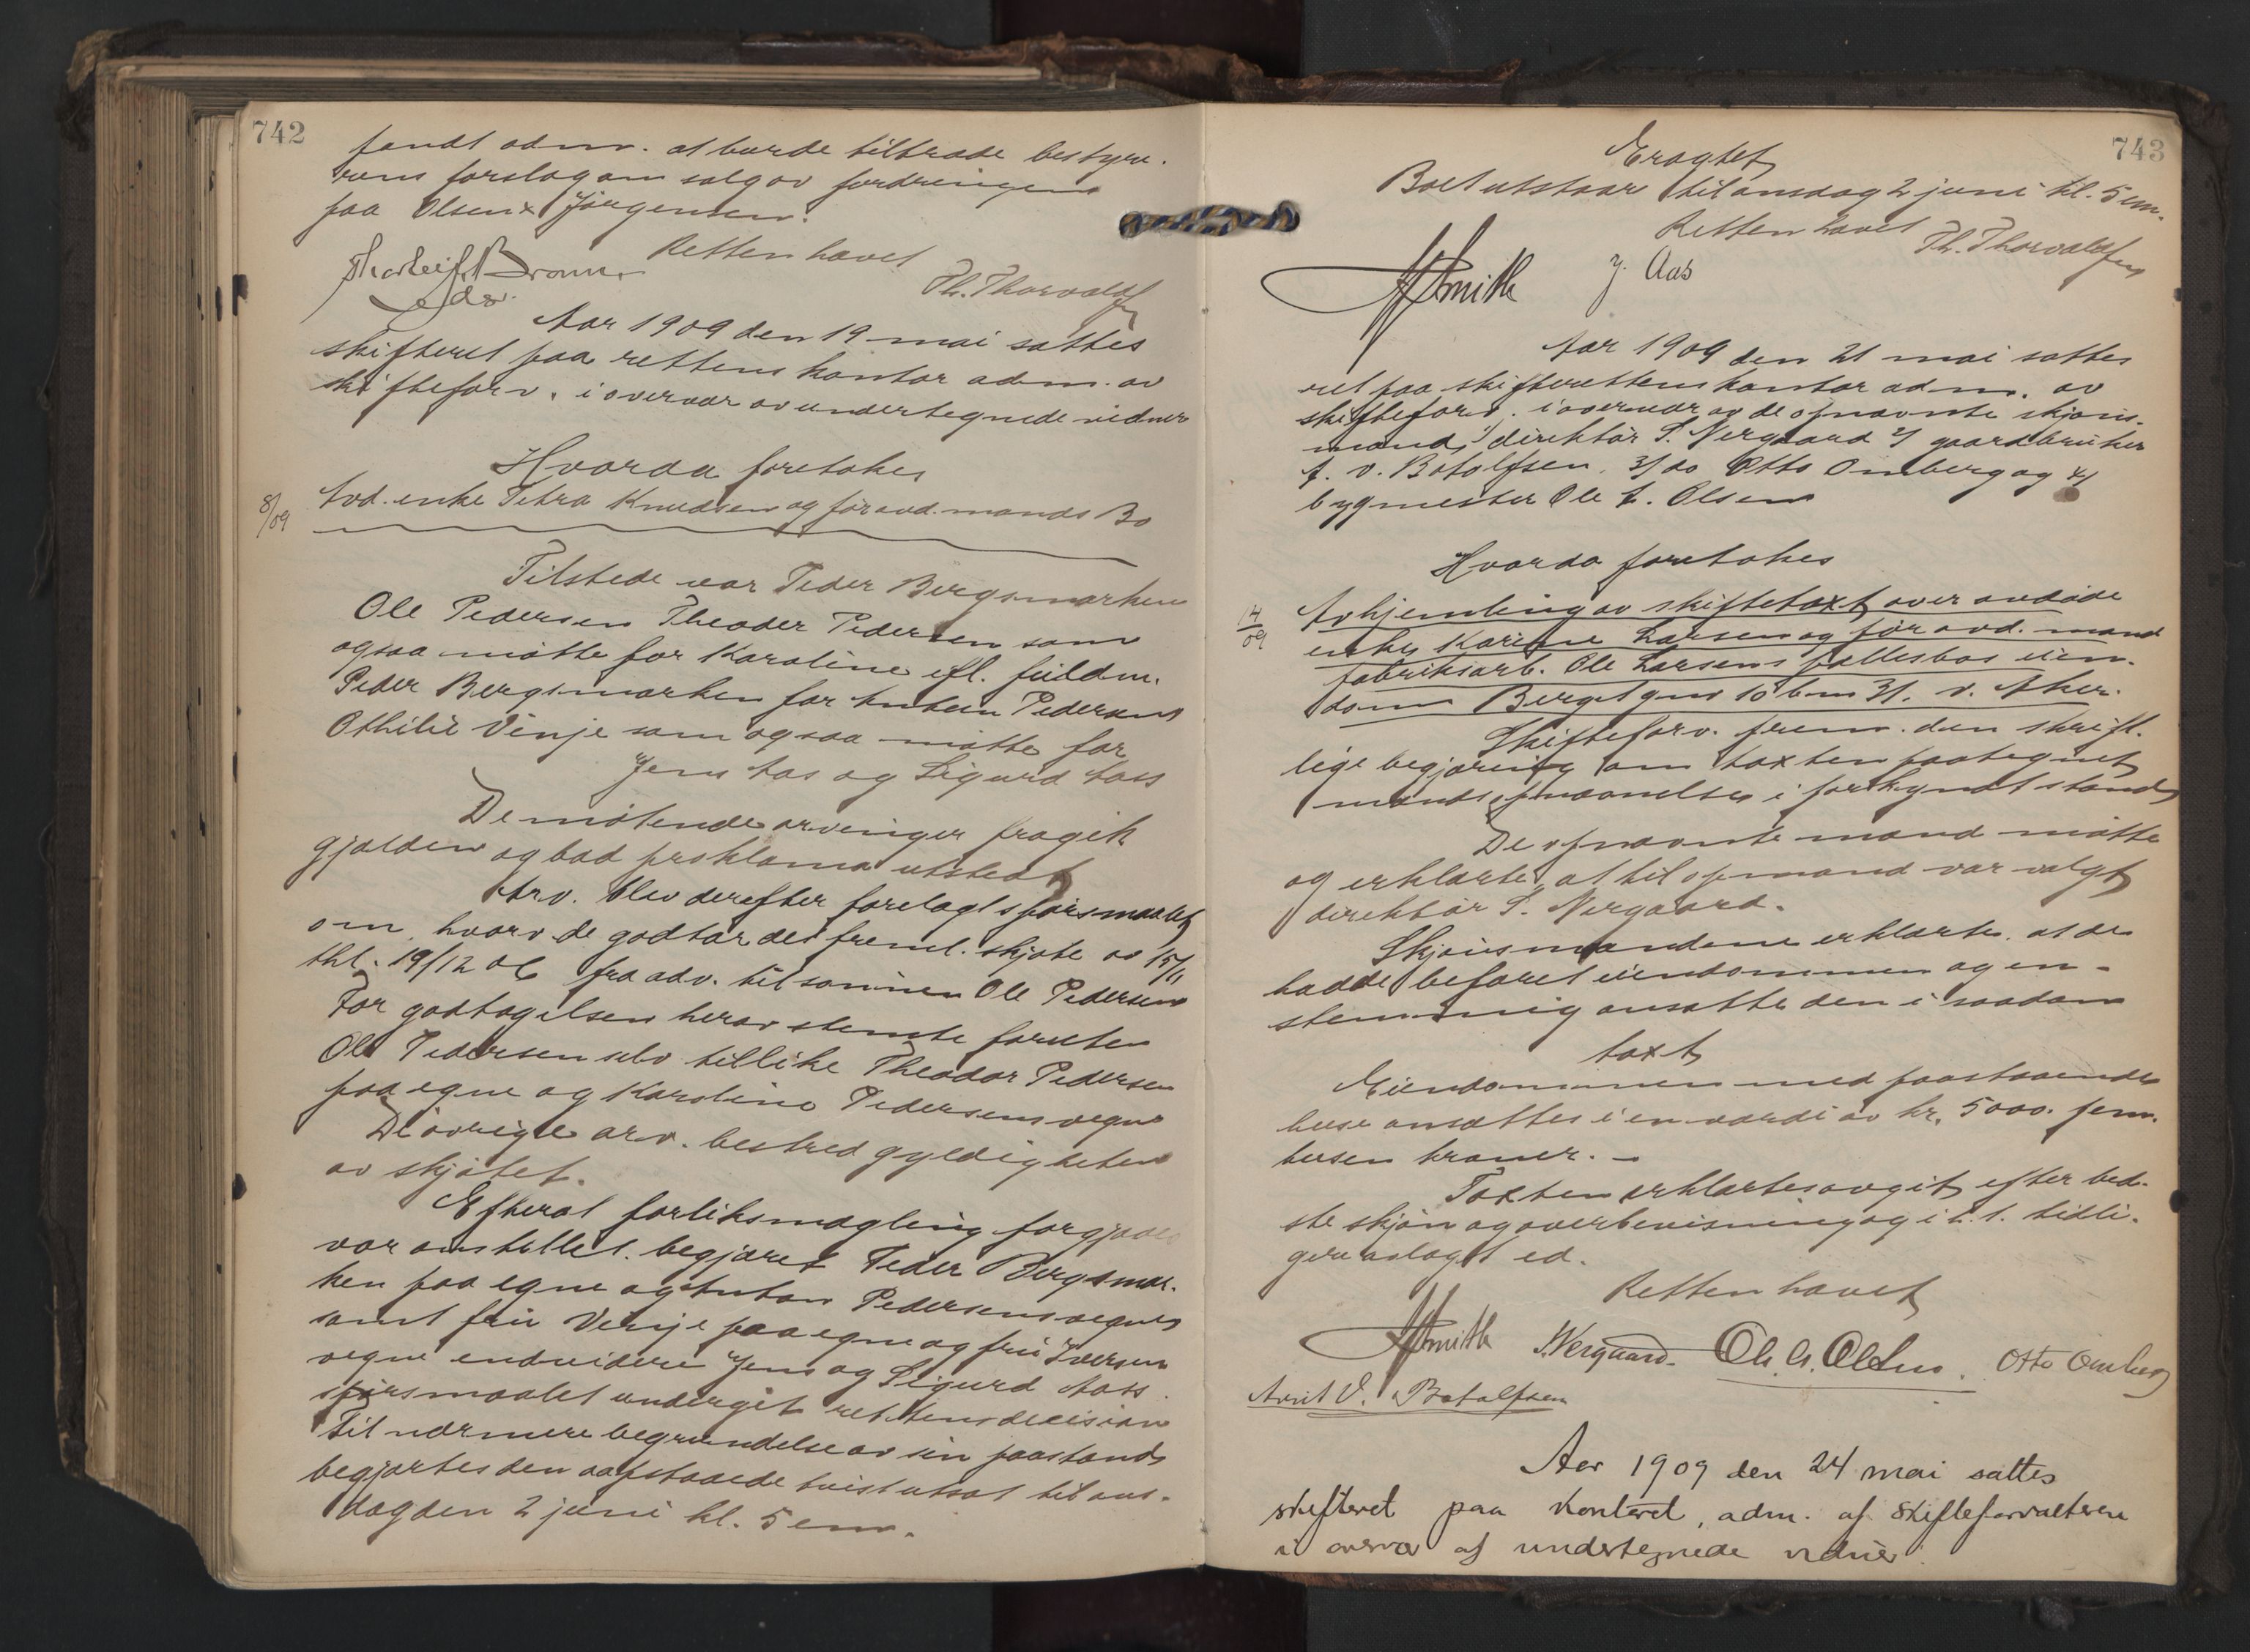 742
fandt adm. at burde tiltræde bestyre-
rens forslag om salg av fordringen
paa Olsen & Jörgensen.
Retten hævet
Th. Thorvaldsen
Aar 1909 den 19 mai sattes
skifteret paa rettens kontor adm. av
skifteforv. i overvær av undertegnede vidner
Hvorda foretokes
8/09 Avd. enke Petra Knudsen og før avd. mands Bo
Tilstede var Peder Bergsmarken
Ole Pedersen Theodor Pedersen som
ogsaa møtte for Karoline efl. fuldm.
Peder Bergsmarken for Anton Pedersen
Othilie Vinje som ogsaa møtte for
Jens Aas og Sigurd Aass
De møtende arvinger fragik
gjælden og bad proklama utstedt
Arv. blev derefter forelagt spørsmaalet
om, hvorv de godtar det freml. skjøte av 15/11
thl. 19/12 06 fra adv. til sønnen Ole Pedersen
For godtagelsen herav stemte foruten
Ole Pedersen selv tillike Theodor Pedersen
paa egne og Karoline Pedersens vegne
De øvrige arv. bestred gyldigheten
av skjøtet.
Efterat forliksmægling forgjæves
var anstillet, begjæret Peder Bergsmar-
ken paa egne og Anton Pedersens vegne
samt fru Vinje paa egne og fru Iversen
vegne endvidere Jens og Sigurd Aass
spørsmaalet undergit rettens decision
Til nærmere begrundelse av sin paastand
begjærtes den opstaaede tvist utsat til ons-
dag den 2 juni kl. 5 em.
743
Eragtet
Boet utstaar til onsdag 2 juni kl. 5 em.
Retten hævet
Th. Thorvaldsen
Smith J. Aas
Aar 1909 den 21 mai sattes
ret paa skifterettens kontor adm. av
skifteforv. i overvær av de opnævnte skjøns-
mænd, 1) direktør S. Nergaard 2) gaardbruker
A. V. Botolfsen, 3) do Otto Omberg og 4)
bygmester Ole A. Olsen
Hvorda foretokes
14/09 Avhjemling av skiftetaxt over avdøde
enke Karine Larsen og før avd. mand
fabriksarb. Ole Larsens fællesbos eien-
dom Berget gno 10 bno 31. v. Aker.
Skifteforv. frem. den skrift-
lige begjæring om taxten paategnet
mændsopnævnelse i forkyndt stand
De opnævnte mænd møtte
og erklærte, at til opmand var valgt
direktør S. Nergaard.
Skjønsmændene erklærte, at de
hadde befaret eiendommen og en-
stemmig ansatte den i saadan
taxt
Eiendommen med paastaaende
huse ansættes i en værdi av kr. 5000. fem
tusen kroner. —
Taxten erklærtes avgit efter bed-
ste skjøn og overbevisning og i h. t. tidli-
gere avlagt ed.
Retten hævet
Smith S. Nergaard. Ole A. Olsen. Otto Omberg
Arnt V. Botolfsen
Aar 1909 den 24 mai sattes
skifteret paa kontoret, adm. af skifteforvalteren
i overvær af undertegnede vidner.